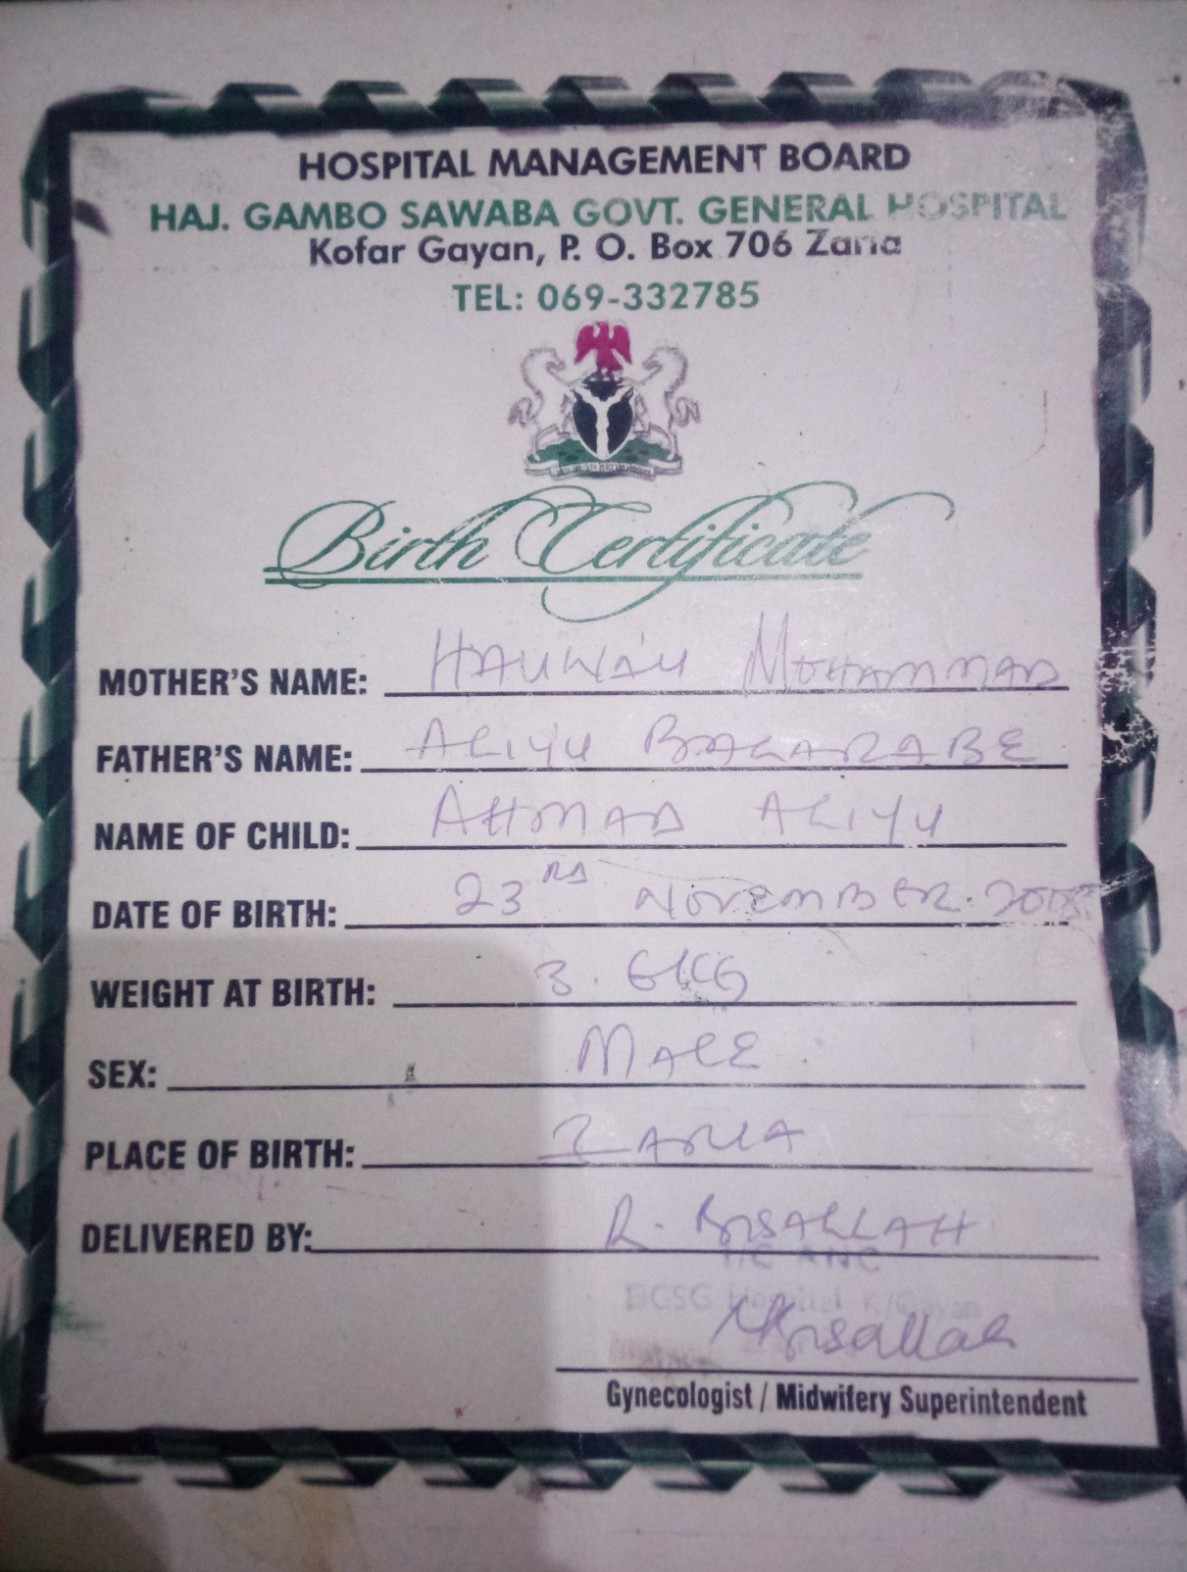 HOSPITAL MANAGEMENT BOARD
HAJ. GAMBO SAWABA GOVT. GENERAL HOSPITAL
Kofar Gayan, P. O. Box 706 Zaria
TEL: 069-332785
Birth Certificate
MOTHER'S NAME: HAUWA'U MOHAMMAD
FATHER'S NAME: ALIYU BALARABE
NAME OF CHILD: AHMAD ALIYU
DATE OF BIRTH: 23RD NOVEMBER.
WEIGHT AT BIRTH: 3.6KG
SEX: MALE
PLACE OF BIRTH: ZARIA
DELIVERED BY: R. BISALLAH
I/C ANC
Hospital K/Gayan
Bisallah
Gynecologist / Midwifery Superintendent